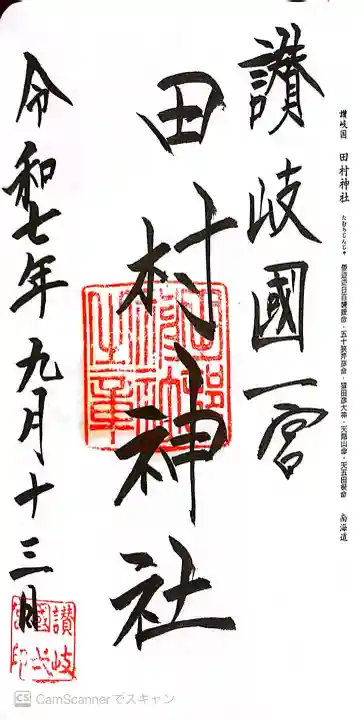 讃岐国 田村神社 たむらじんじゃ 倭迹迹日百襲姫命・五十狭芹彦命・猿田彦大神・天隠山命・天五田根命 南海道
讃岐國一宮
田村神社
令和七年九月十三日
讃岐
CamScannerでスキャン